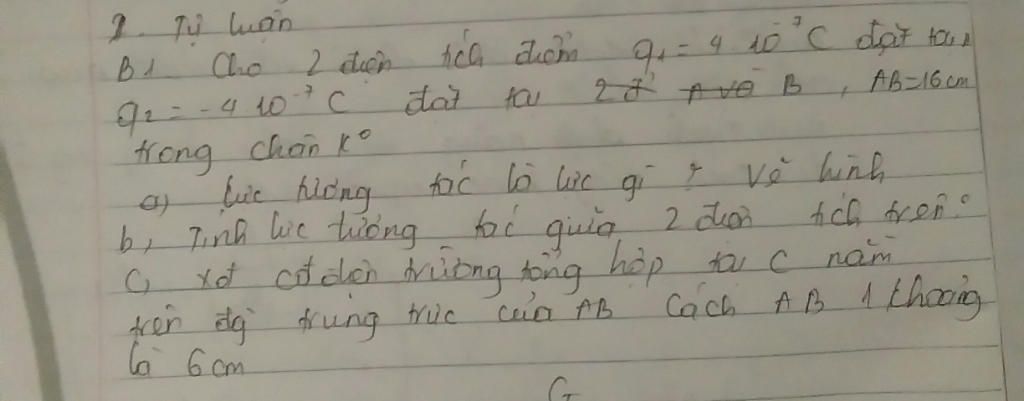 2. Tự luận
B1 Cho 2 điện tích điểm q1 = 4 10⁻⁷C đặt tại
q2 = -4 10⁻⁷ C đặt tại B, AB=16cm
trong chân k°
a) Lực tương tác là lực gì? Vẽ hình
b, Tính lực tương tác giữa 2 điện tích trên.
C, xđ cđ điện trường tổng hợp tại C nằm
trên đg trung trực của AB cách AB 1 khoảng
là 6cm